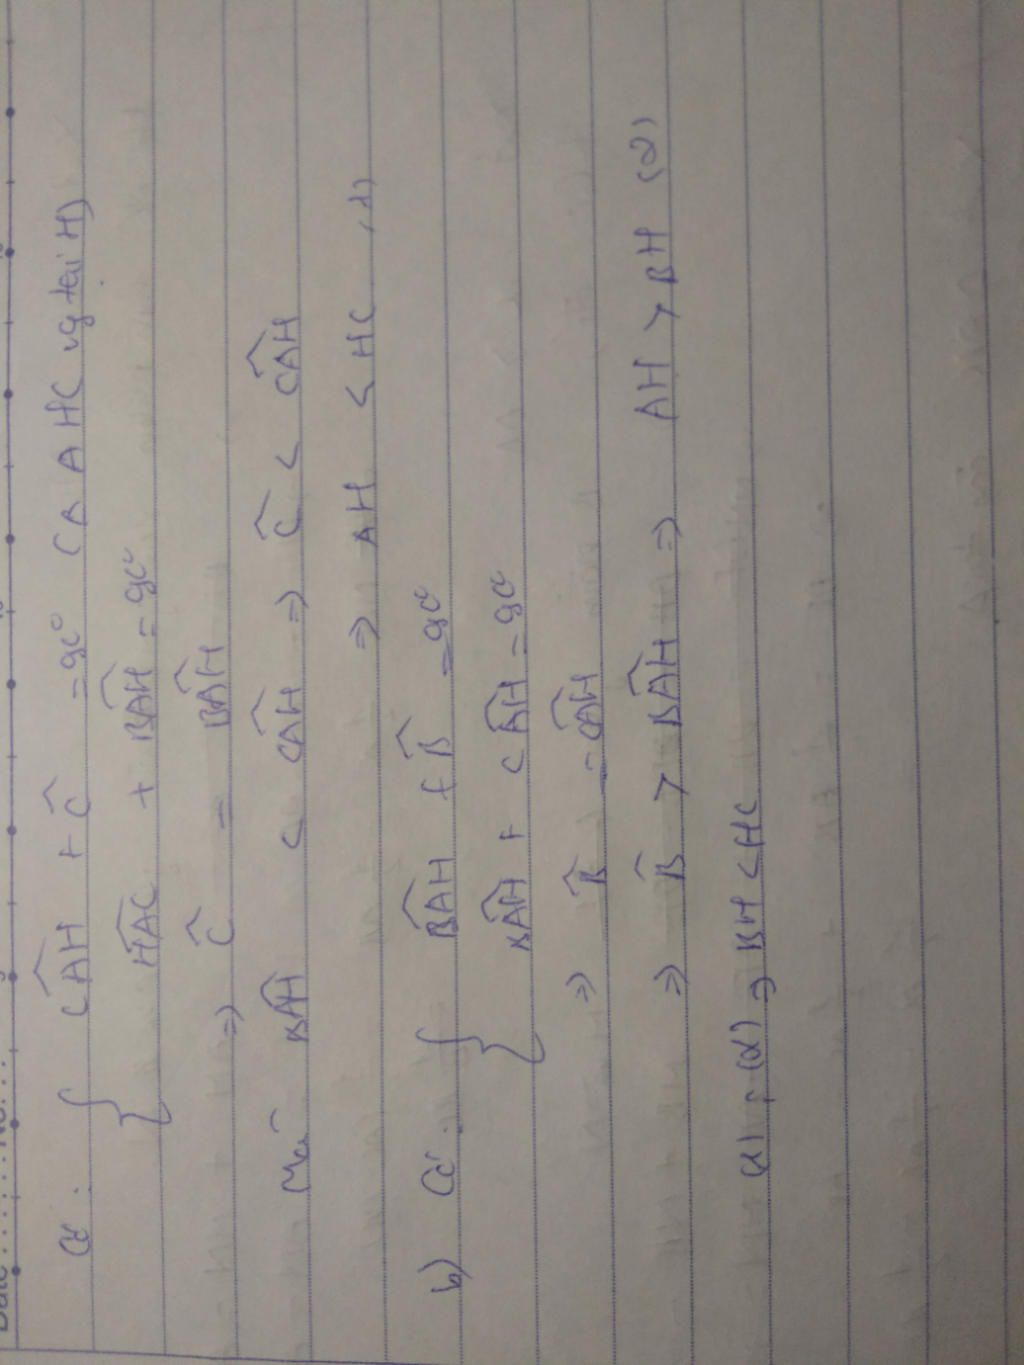 Date ....... No. ...
Có : { ĈAH + Ĉ = 90° (Δ AHC vg tại H)
ĤAC + B̂AH = 90°
=> Ĉ = B̂AH
Mà B̂AH < ĈAH => Ĉ < ĈAH
=> AH < HC (1)
b) Có : { B̂AH + B̂ = 90°
B̂AH + ĈAH = 90°
=> B̂ = ĈAH
=> B̂ > B̂AH => AH > BH (2)
(1) , (2) => BH < HC